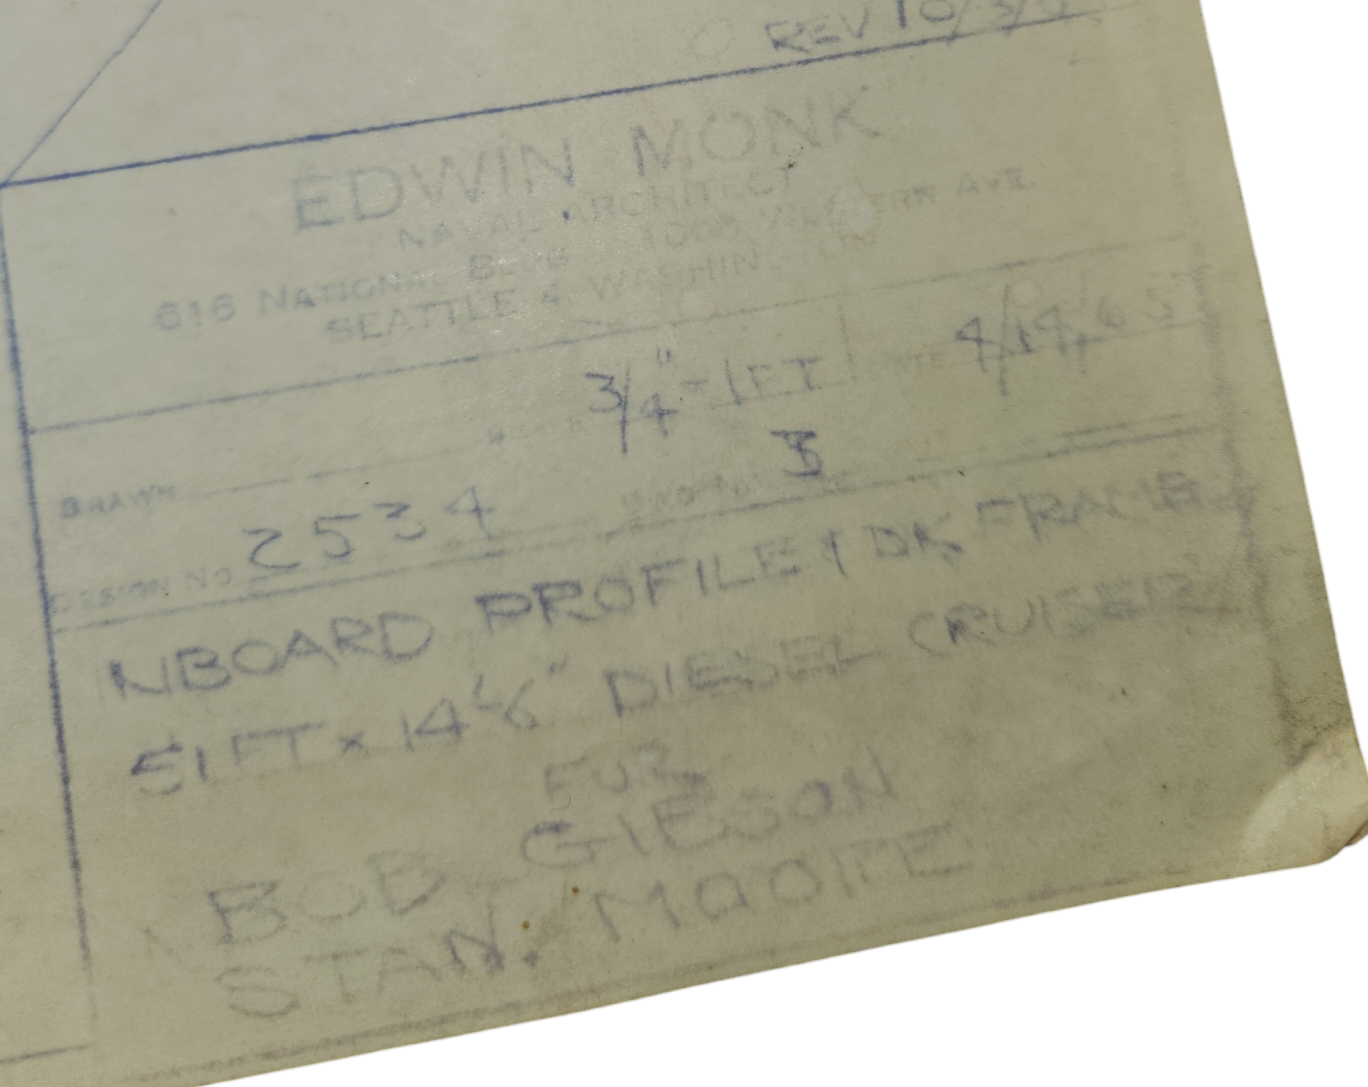 REV 10/3/6
EDWIN MONK
NAVAL ARCHITECT
616 NATIONAL BLDG 1008 WESTERN AVE
SEATTLE 4, WASHINGTON
DRAWN SCALE 3/4" = 1 FT DATE 4/14/65
DESIGN NO 2534 DWG No 3
INBOARD PROFILE & DK FRAME
51 FT x 14'6" DIESEL CRUISER
FOR
BOB GIBSON
STAN. MOORE